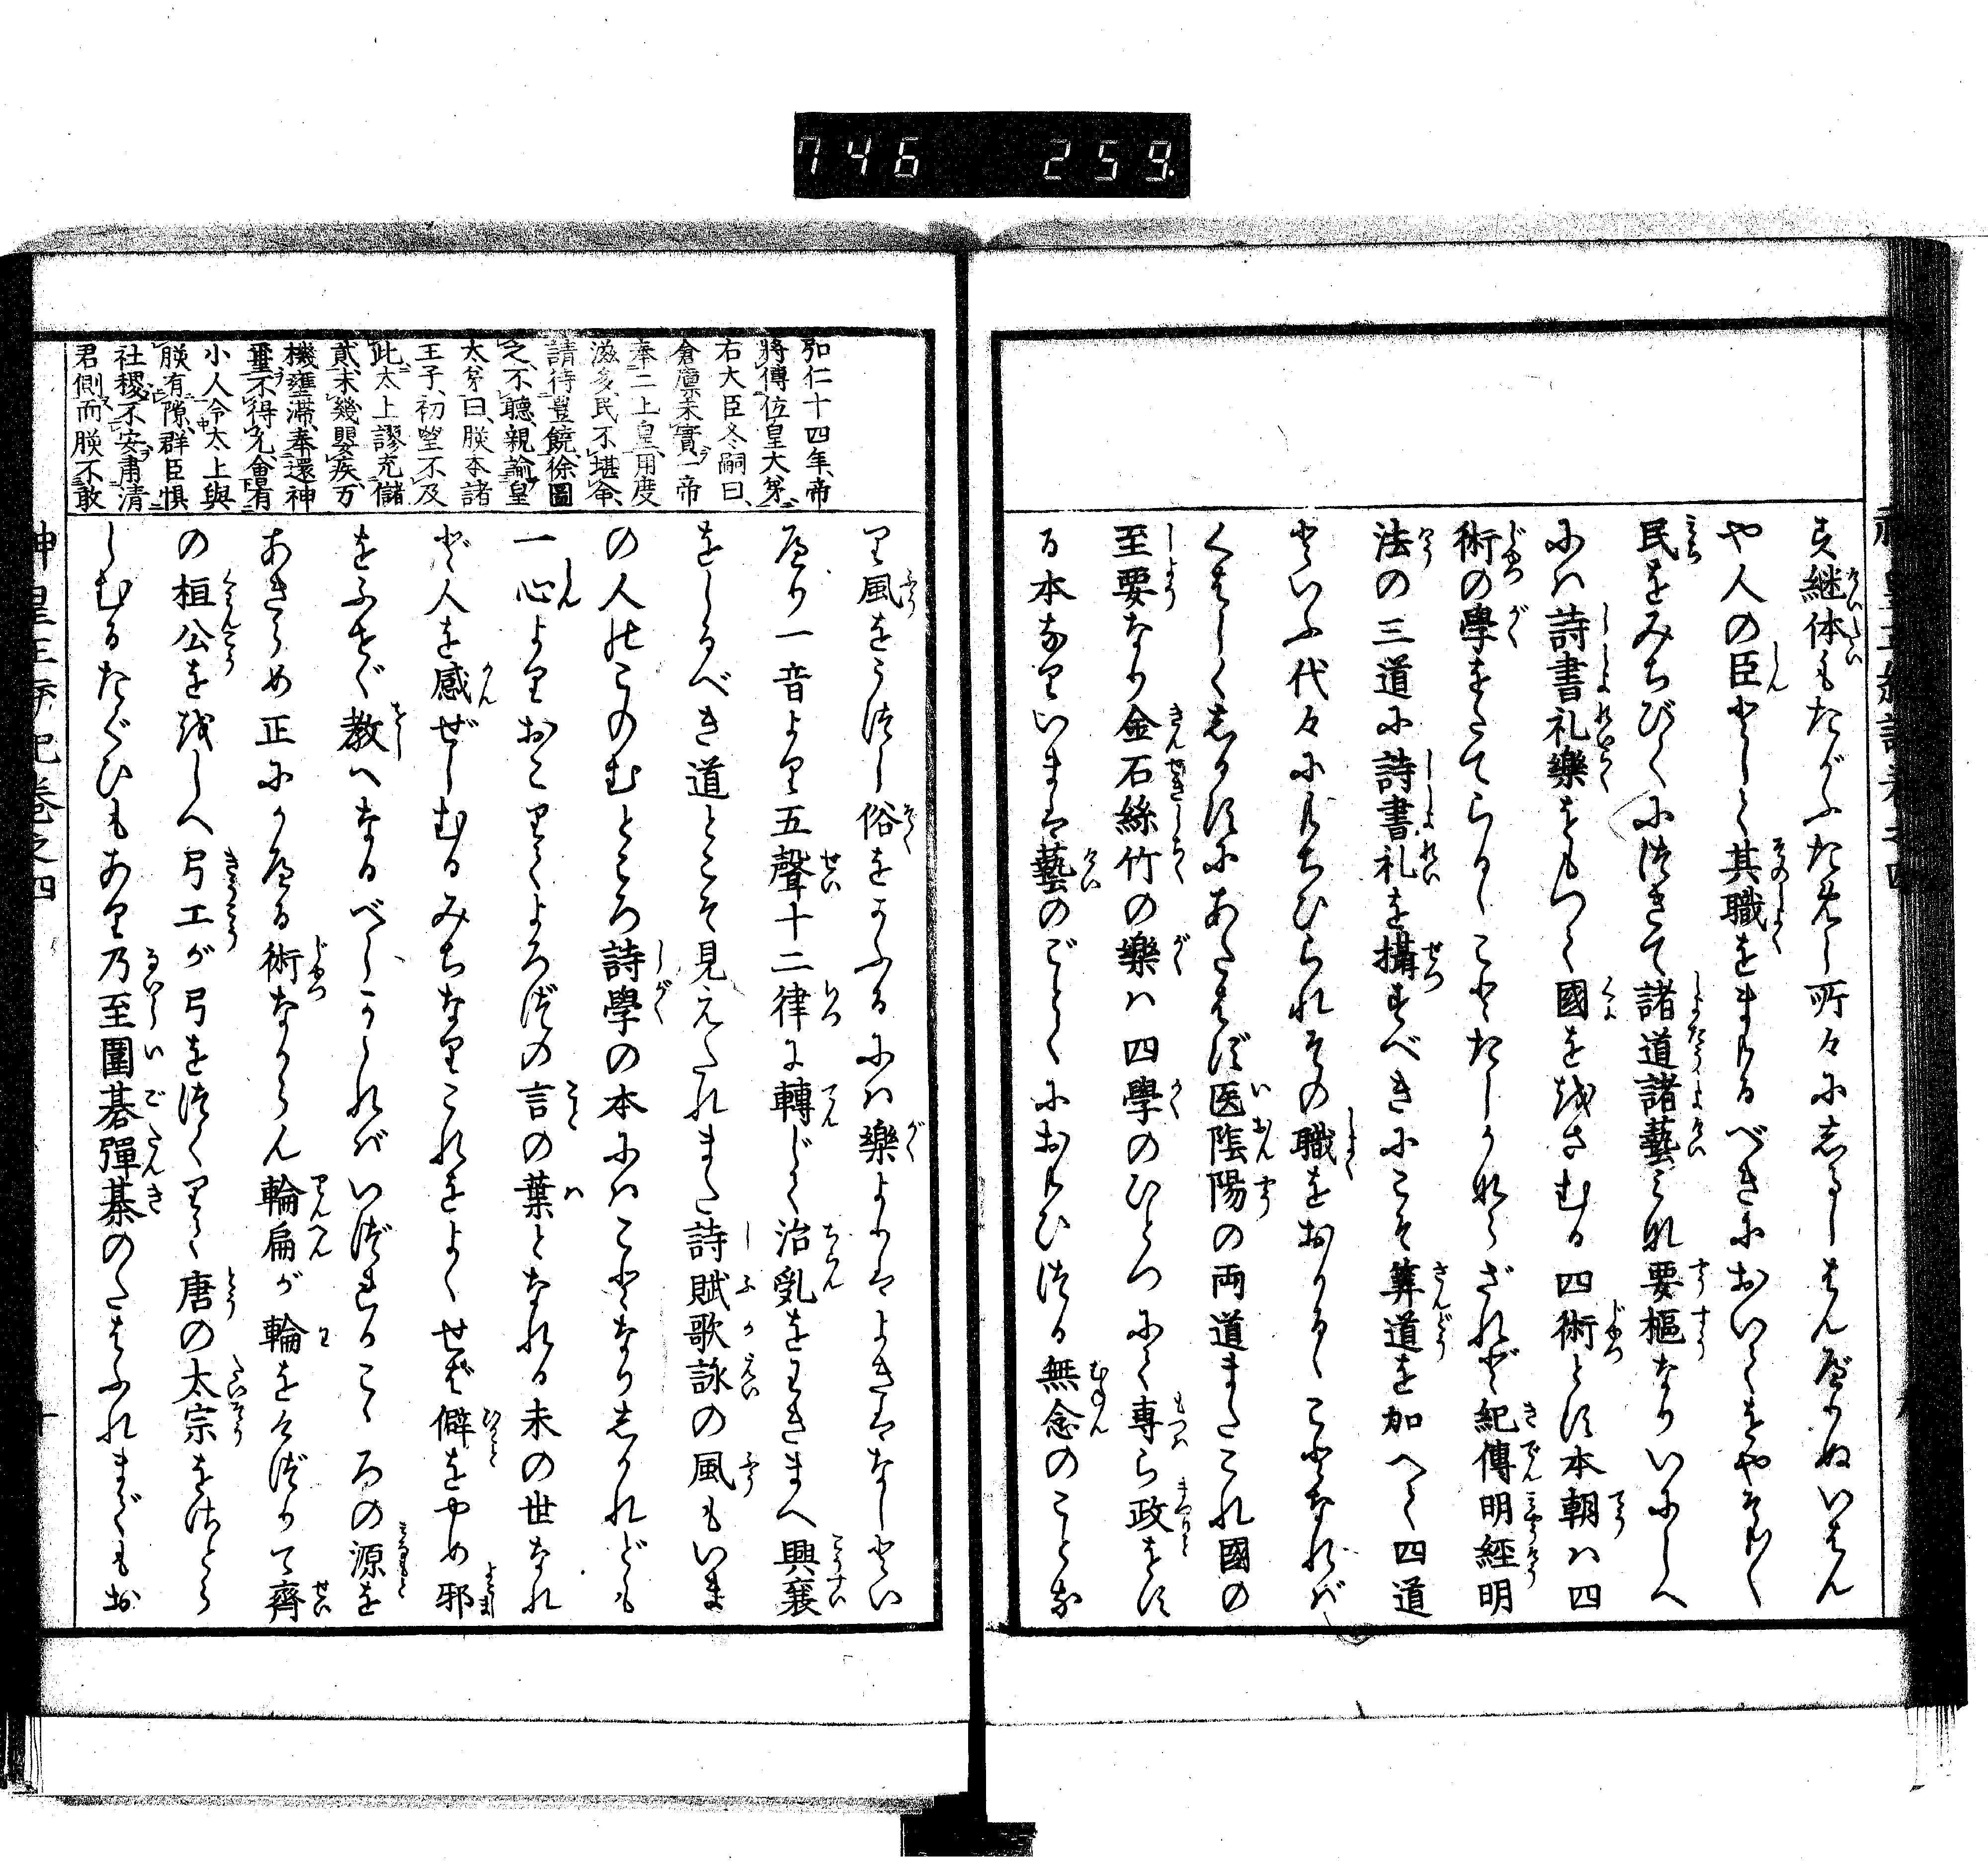 746 259
す継体もたがふためし所々にしるしはんべりぬいはん
や人の臣としく其職をまもるべきにおいてをやそも〳〵
民をみちびくにつきて諸道諸藝みな要樞なりいにしへ
には詩書礼樂をもつて國をおさむる四術とす本朝は四
術の學をたてらるゝことたしかならざれど紀傳明経明
法の三道に詩書礼を攝すべきにこそ算道を加へて四道
といふ代々にもちひられその職をおかるゝことなれば
くはしくしるすにあたはず医陰陽の両道またこれ國の
至要なり金石絲竹の樂は四學のひとつにて専ら政をす
る本なりいまは藝のごとくにおもひつる無念のことな
り風をうつし俗をかふるには樂よりはよきはなしとい
へり一音より五聲十二律に轉じて治乱をわきまへ興衰
をしるべき道とこそ見えたれまた詩賦歌詠の風もいま
の人のこのむところ詩學の本にはことなりしかれども
一心よりおこりてよろづの言の葉となれる末の世なれ
ど人を感ぜしむるみちなりこれをよくせば僻をやめ邪
をふせぐ教へなるべしかゝればいづれるこゝろの源を
あきらめ正にかへる術なからん輪扁が輪をけづりて齊
の桓公をおしへ弓工が弓をつくりて唐の太宗をさとら
しむるたぐひもあり乃至圍碁彈棊のたはふれまでもお
弘仁十四年、帝
將傳位皇大弟
右大臣冬嗣曰、
倉廩未實一帝
奉二上皇、用度
滋多、民不堪命、
請待豊饒、徐圖
之、不聽、親諭皇
太弟曰、朕本諸
王子、初望不及
此、太上謬充儲
貳、未幾嬰疾、万
機壅滞、奉還神
璽、不得允、會有
小人令太上與
朕有隙、群臣惧
社稷不安、肅清
君側、而朕不敢
神皇正統記巻之四